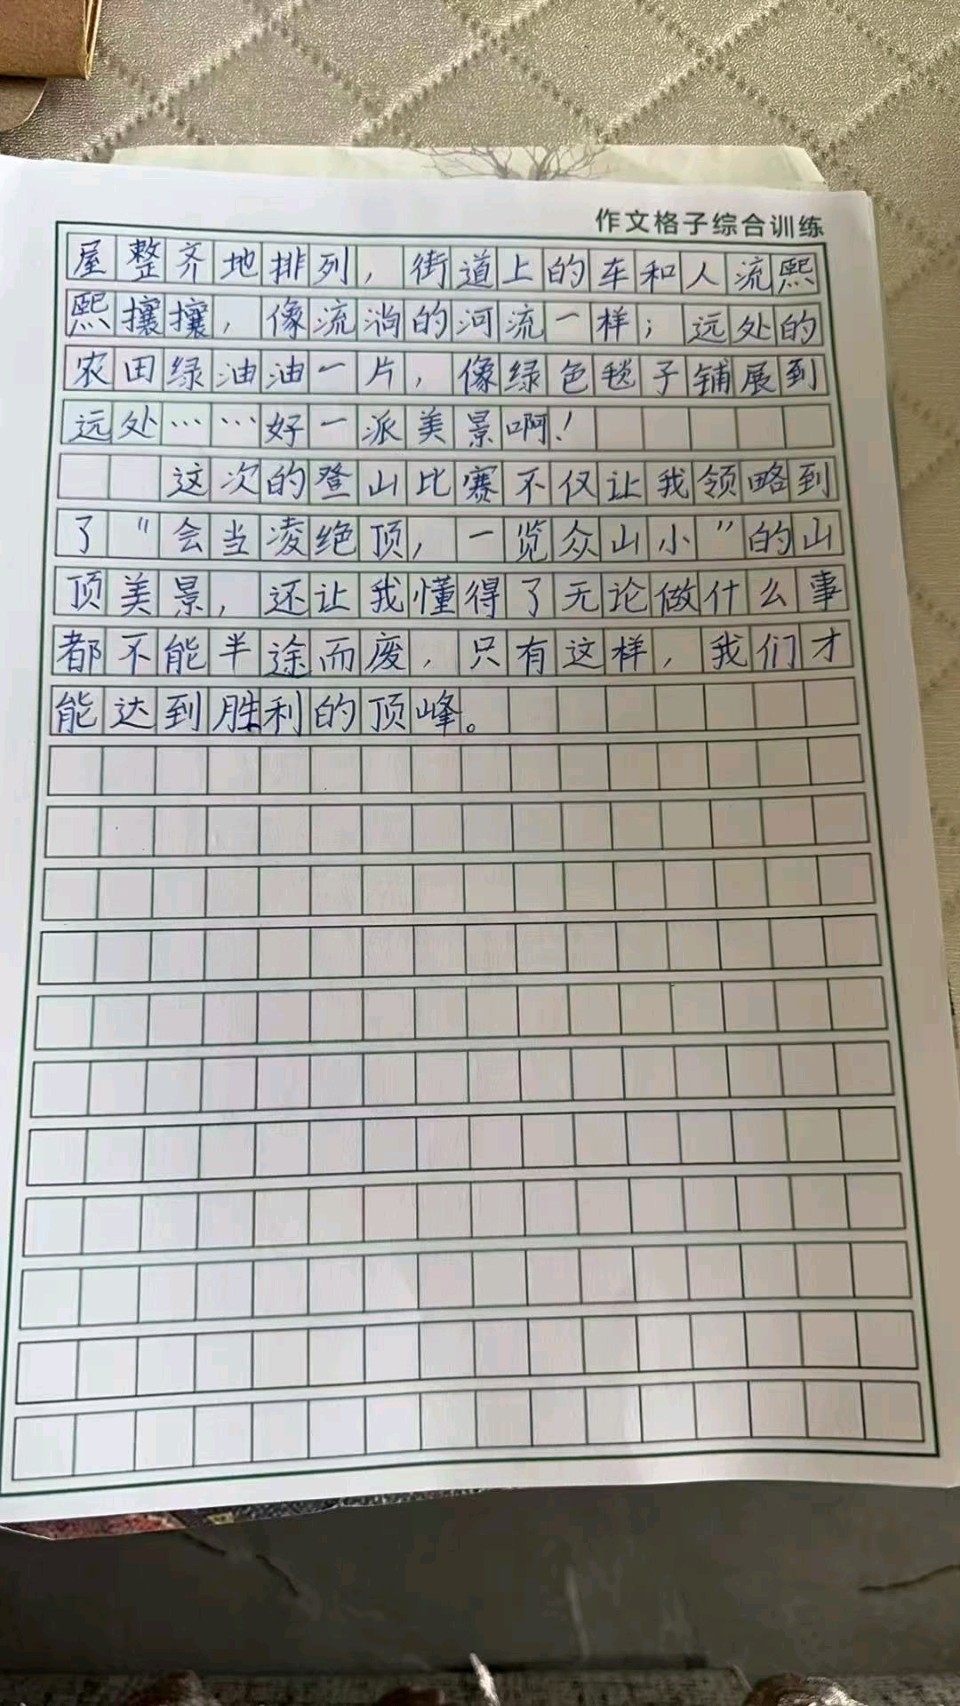 作文格子综合训练
屋整齐地排列，街道上的车和人流熙
熙攘攘，像流淌的河流一样；远处的
农田绿油油一片，像绿色毯子铺展到
远处……好一派美景啊！
这次的登山比赛不仅让我领略到
了“会当凌绝顶，一览众山小”的山
顶美景，还让我懂得了无论做什么事
都不能半途而废，只有这样，我们才
能达到胜利的顶峰。